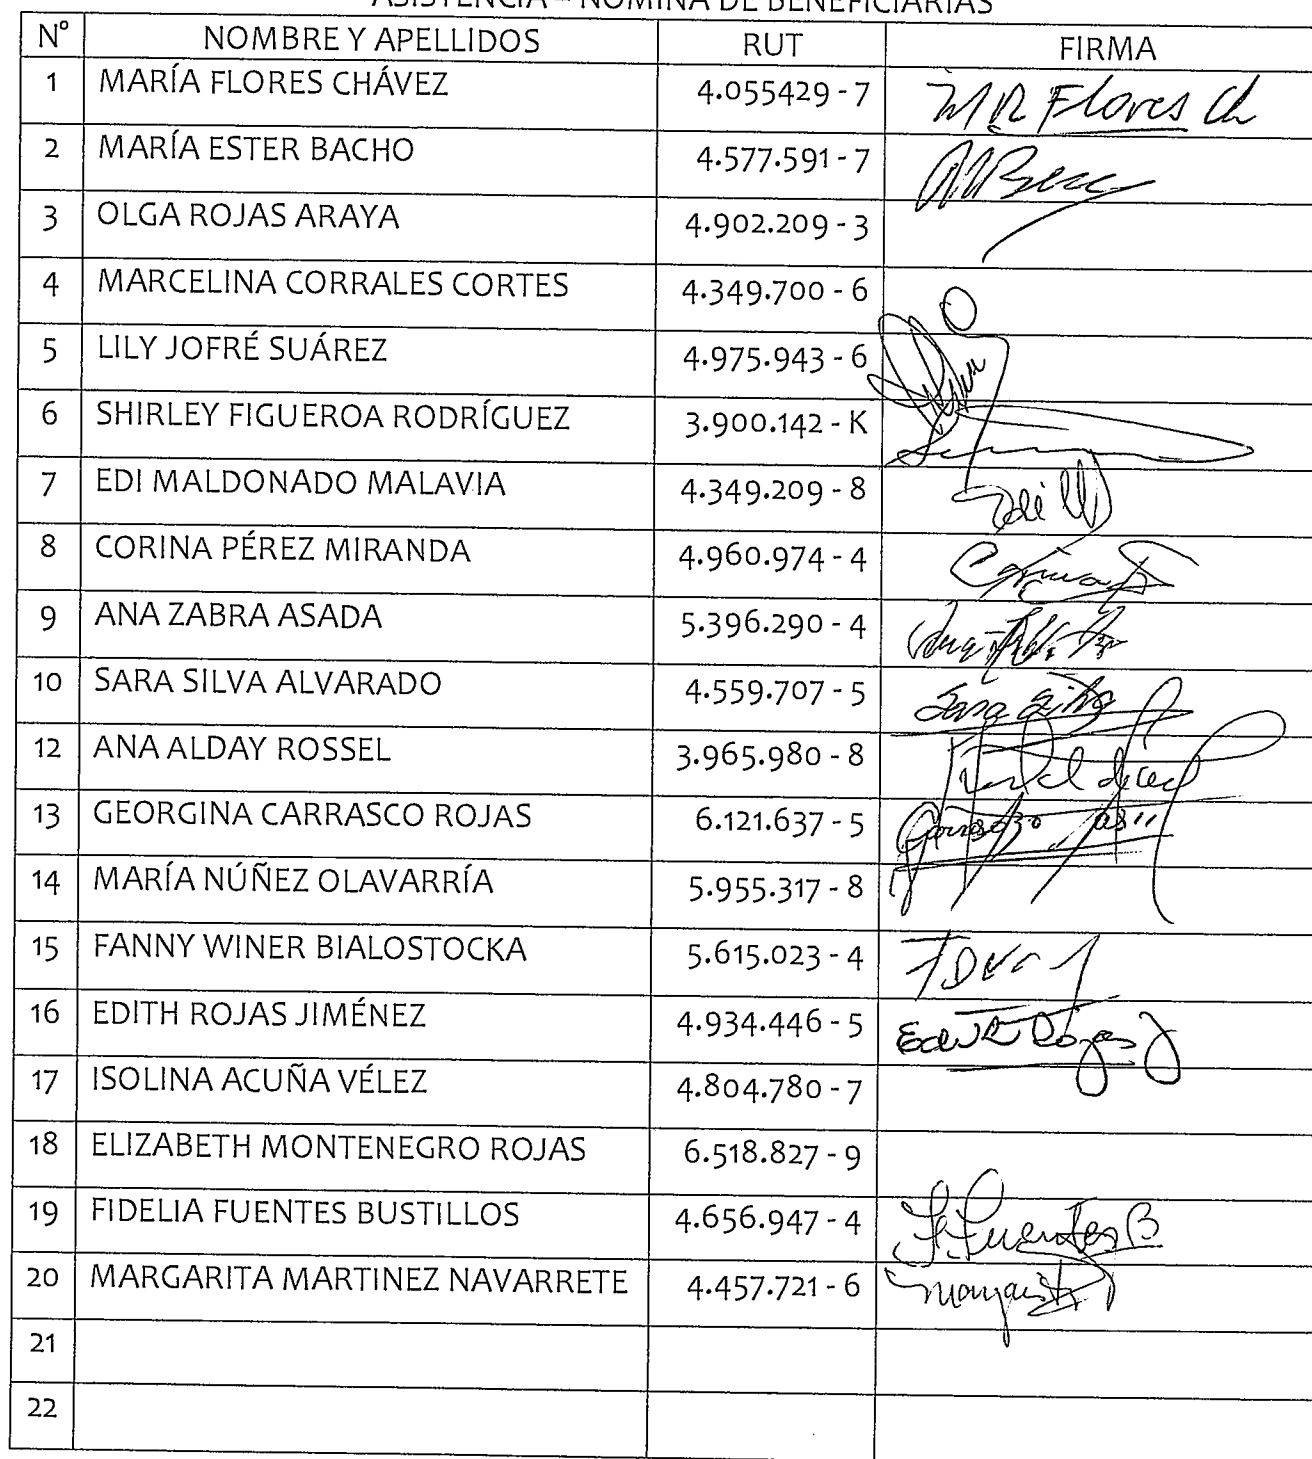 ASISTENCIA – NOMINA DE BENEFICIARIAS
N° NOMBRE Y APELLIDOS RUT FIRMA
1 MARÍA FLORES CHÁVEZ 4.055429 - 7 M R Flores Ch
2 MARÍA ESTER BACHO 4.577.591 - 7
3 OLGA ROJAS ARAYA 4.902.209 - 3
4 MARCELINA CORRALES CORTES 4.349.700 - 6
5 LILY JOFRÉ SUÁREZ 4.975.943 - 6
6 SHIRLEY FIGUEROA RODRÍGUEZ 3.900.142 - K
7 EDI MALDONADO MALAVIA 4.349.209 - 8
8 CORINA PÉREZ MIRANDA 4.960.974 - 4 Corina P
9 ANA ZABRA ASADA 5.396.290 - 4
10 SARA SILVA ALVARADO 4.559.707 - 5 Sara Silva
12 ANA ALDAY ROSSEL 3.965.980 - 8
13 GEORGINA CARRASCO ROJAS 6.121.637 - 5
14 MARÍA NÚÑEZ OLAVARRÍA 5.955.317 - 8
15 FANNY WINER BIALOSTOCKA 5.615.023 - 4
16 EDITH ROJAS JIMÉNEZ 4.934.446 - 5 Edith Rojas J
17 ISOLINA ACUÑA VÉLEZ 4.804.780 - 7
18 ELIZABETH MONTENEGRO ROJAS 6.518.827 - 9
19 FIDELIA FUENTES BUSTILLOS 4.656.947 - 4 F. Fuentes B
20 MARGARITA MARTINEZ NAVARRETE 4.457.721 - 6
21
22